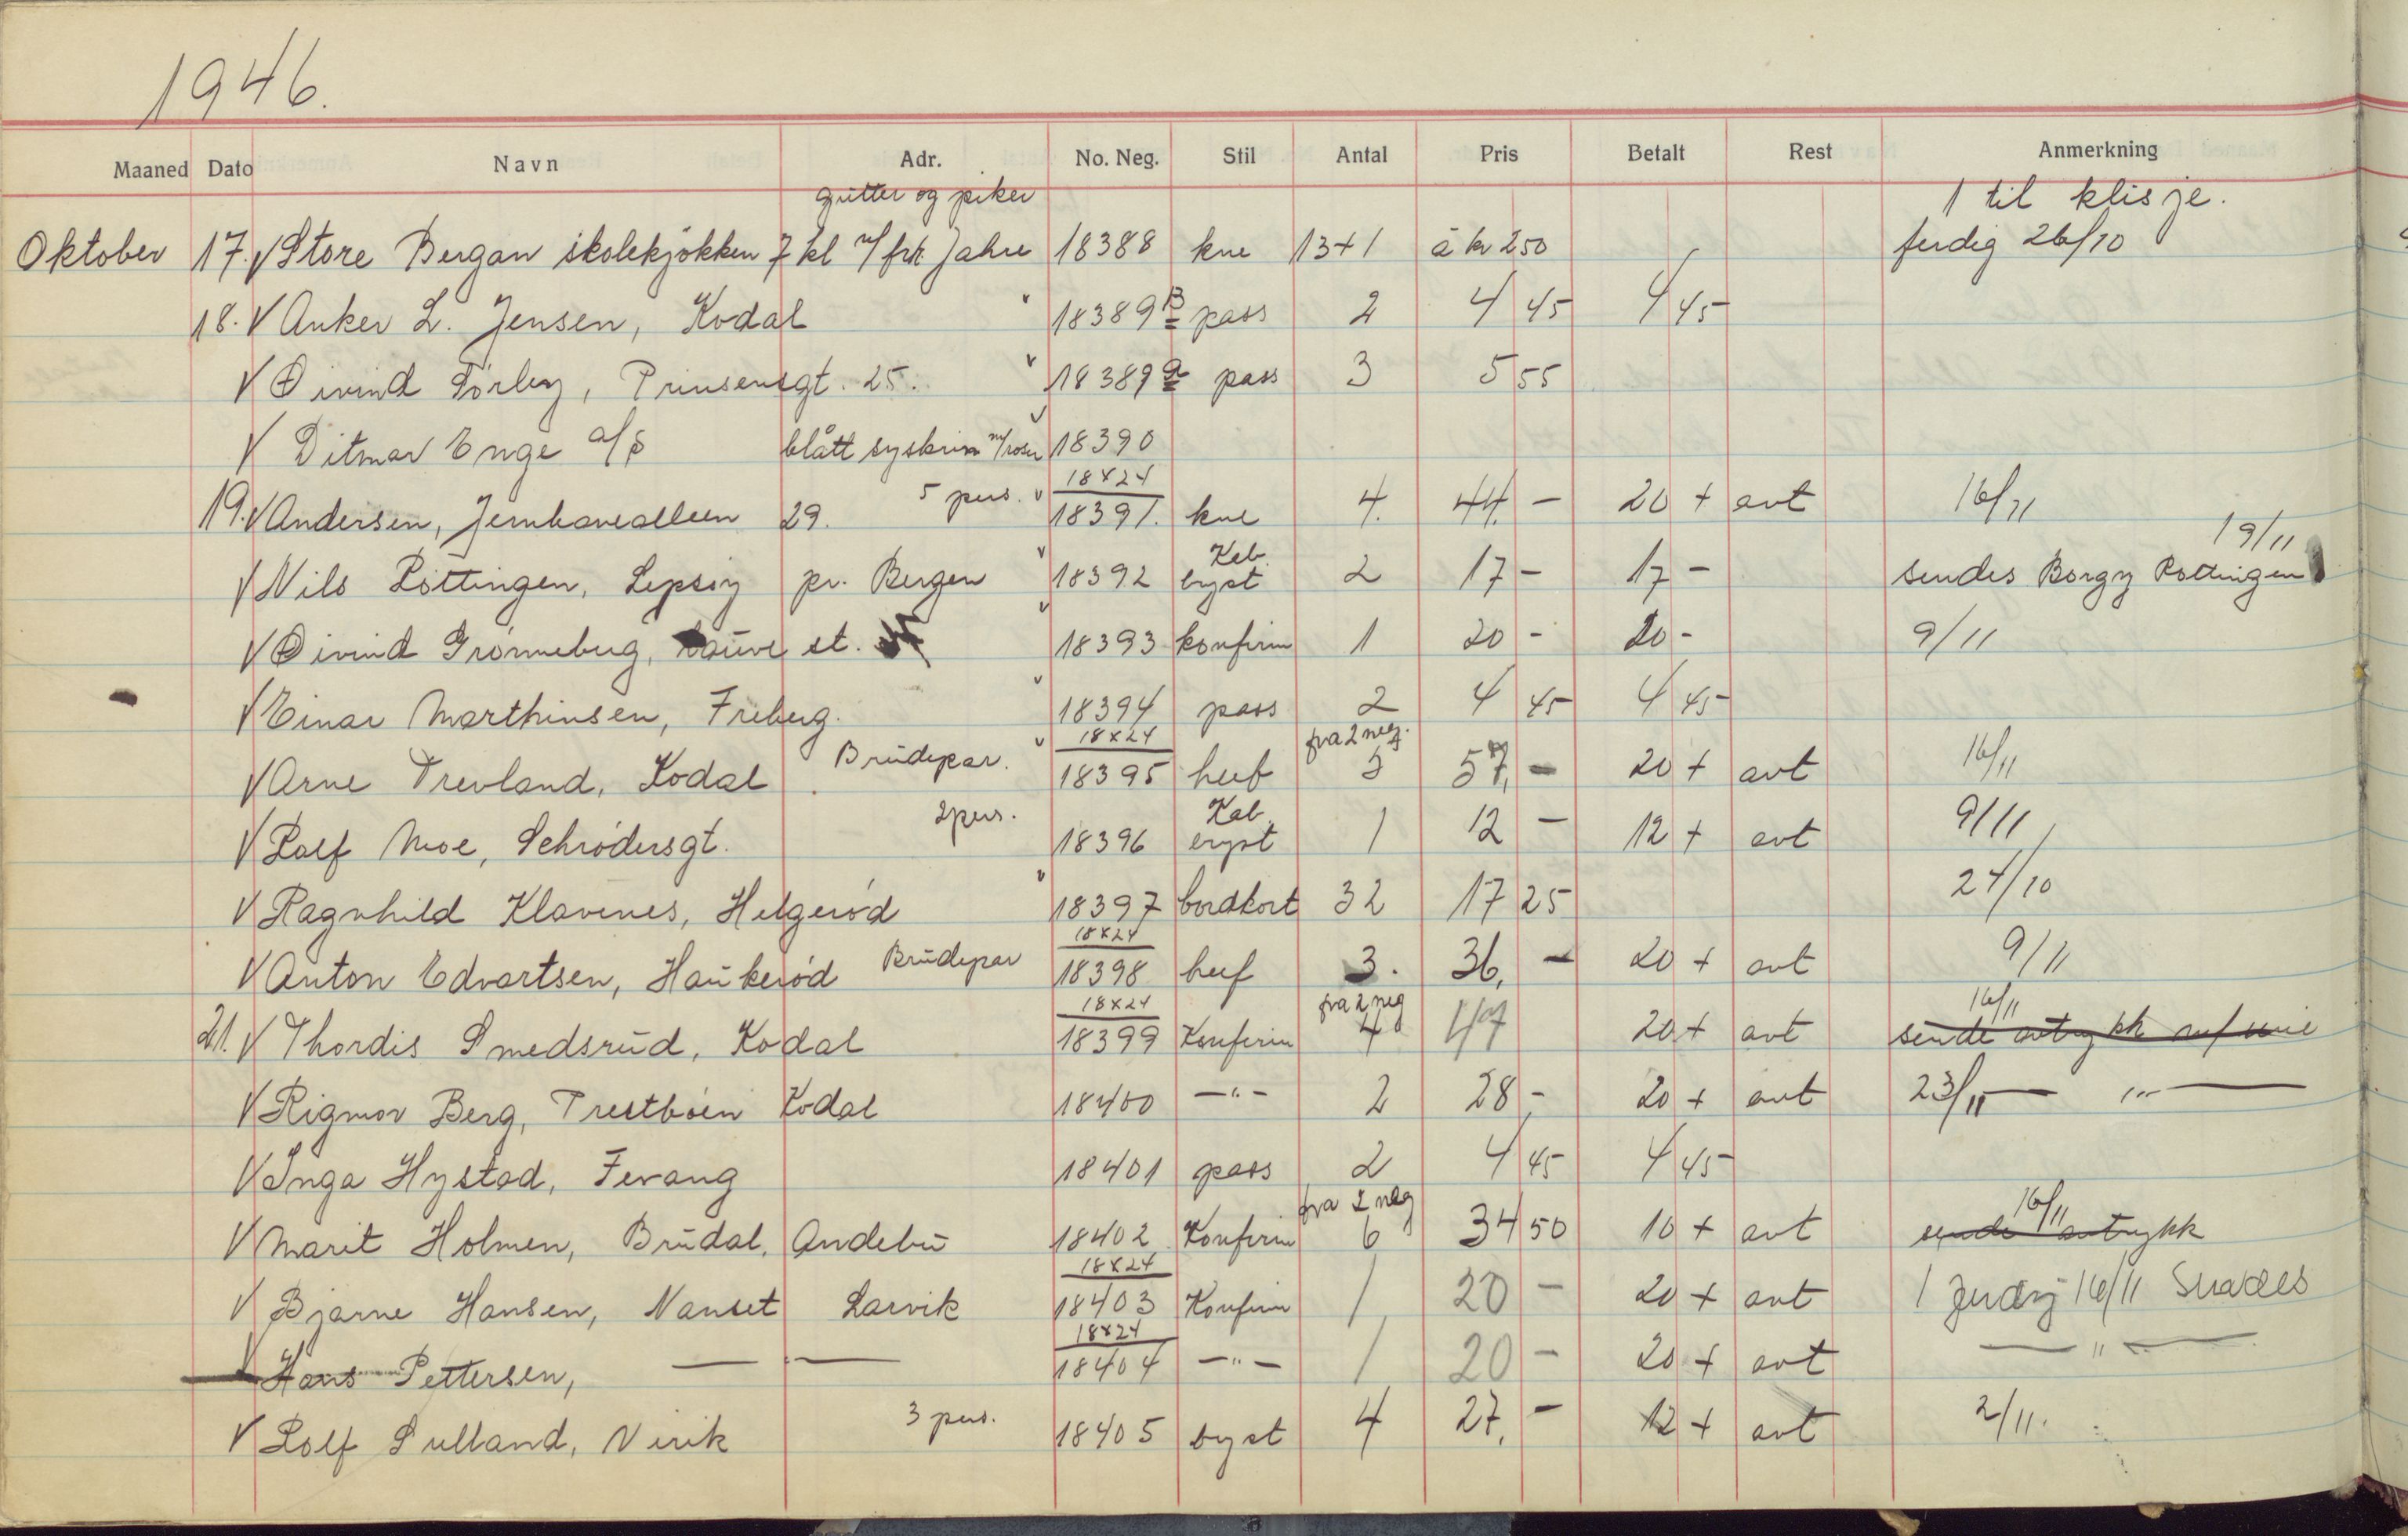 1946.
Maaned Dato Navn Adr. No. Neg. Stil Antal Pris Betalt Rest Anmerkning
gutter og piker 1 til klisje.
Oktober 17. V Store Bergan skolekjøkken 7 kl m/frk. Jahre 18388 kne 13+1 á kr 2 50 ferdig 26/10
18. V Anker L. Jensen, Kodal 18389 B pass 2 4 45 4 45
V Øivind Sørby, Prinsensgt. 25. 18389 a pass 3 5 55
V Ditmar Enge a/s blått syskrin m/roser 18390
5 pers. 18x24
19. V Andersen, Jernbanealleen 29. 18391. kne 4. 44. - 20 + avt 16/11
Kab. 19/11
V Nils Røttingen, Lepsøy pr. Bergen 18392 bryst 2 17 - 17 - sendes Borgny Røttingen
V Øivind Grønneberg, Sauve st. 18393 konfirm 1 20 - 20 - 9/11
V Einar Marthinsen, Freberg. 18394 pass 2 4 45 4 45
Brudepar. 18x24 fra 2 neg.
V Arne Trevland, Kodal 18395 heef 5 57, - 20 + avt 16/11
2 pers. Kab.
V Rolf Moe, Schrødersgt. 18396 bryst 1 12 - 12 + avt 9/11
V Ragnhild Klavenes, Helgerød 18397 bordkort 32 17 25 24/10
Brudepar 18x24
V Anton Edvartsen, Haukerød 18398 heef 3. 36, - 20 + avt 9/11
18x24 fra 2 neg 16/11
21. V Thordis Smedsrud, Kodal 18399 Konfirm 4 47 20 + avt sende avtrykk
V Rigmor Berg, Trestbøen Kodal 18400 -"- 2 28, - 20 + avt 23/11 — "" —
V Inga Hystad, Fevang 18401 pass 2 4 45 4 45
fra 2 neg 16/11
V Marit Holmen, Brudal, Andebu 18402 Konfirm 6 34 50 10 + avt sende avtrykk
18x24
V Bjarne Hansen, Nanset Larvik 18403 Konfirm 1 20 - 20 + avt 1 ferdig 16/11 Sendes
18x24
V Hans Pettersen, — — 18404 -"- 1 20 - 20 + avt — " —
3 pers.
V Rolf Sulland, Virik 18405 bryst 4 27, - 12 + avt 2/11.